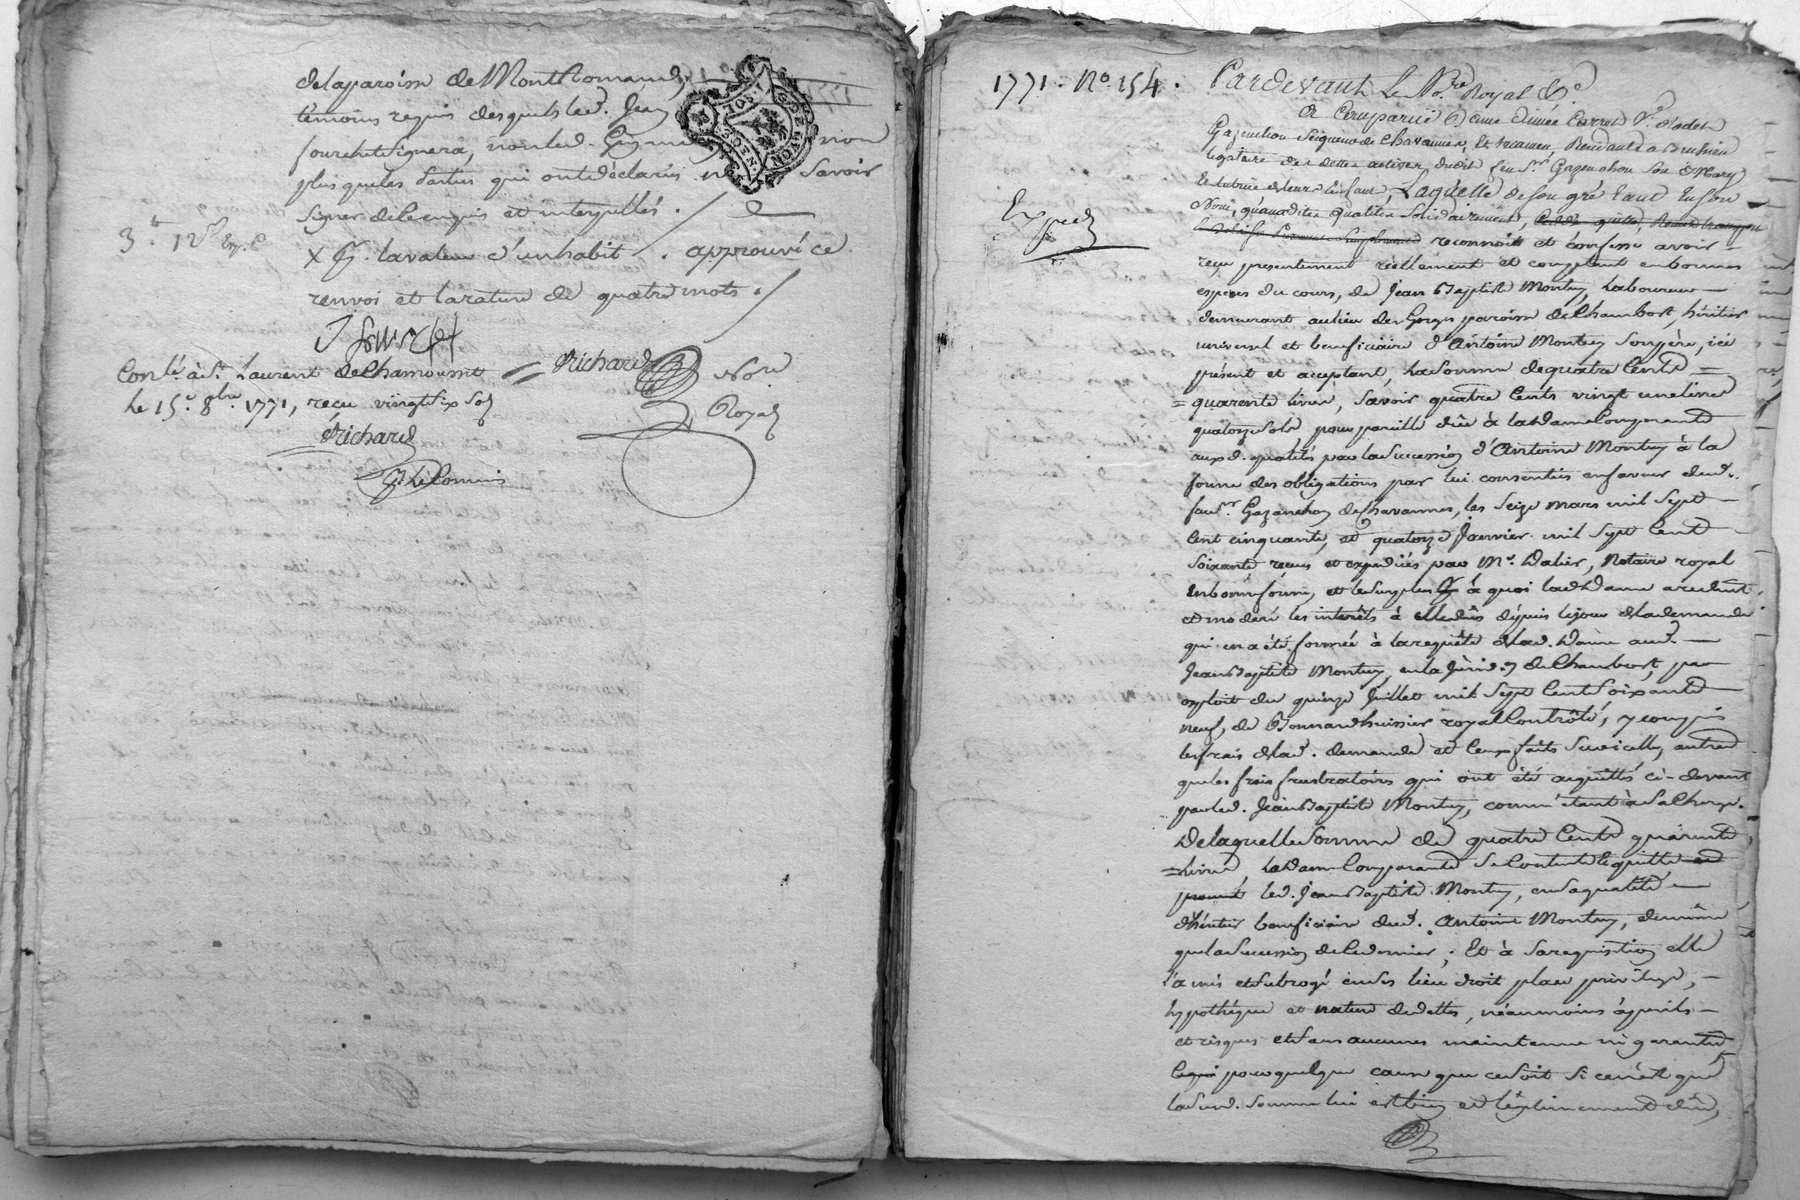 delaparoisse de Montromand,
temoins requis desquels led. Jean
fourchet signera, non led. non
plus que les parties qui ont déclarés ne Savoir
Signer de ce enquis et interpellés.
3.# 12s Exp. C
X &. la valeur d'un habit /. approuvé ce
renvoi et la rature de quatre mots./
J fourchet
Richard Nore
Royal
Conlé. à St. Laurent de Chamousset
le 15e. 8bre. 1771, reçu vingt six sols
Richard
1771. No. 154.
Pardevant Le Nore. Royal &c.
A Comparüe Dame Aimée Ve. d'odet
Gazanchon Seigneur de Chavannes, et
legataire des dettes actives dudit feu Sr. Gazanchon Son Mary
et tutrice de leurs enfants, Laquelle de son gré tant en son
Nom, qu'auxdites qualités Solidairement,
reconnoit et confesse avoir
Exped
reçu presentement réellement et comptant en bonnes
espèces du cours, de Jean Baptiste Montey, Laboureur
demeurant au lieu des Gorges paroisse de Chambost, héritier
universel et beneficiaire d'Antoine Montey Son père, ici
présent et acceptant, la somme de quatre Cents
quarente livres, Savoir quatre Cents vingt une livres
quatorze sols pour pareille dûë à la Dame Comparante
auxd. qualités par la Succession d'Antoine Montey à la
forme des obligations par lui consenties en faveur dud.
feu Sr. Gazanchon de Chavannes, les seize mars mil Sept
Cent cinquante, et quatorze Janvier mil Sept Cent
Soixante reçues et expediées par Me. Dalier, Notaire royal
en bonne forme, et le surplus à quoi lad. Dame a reduit
et moderé les interêts à elle dûs depuis le jour de la demande
qui en a été formée à la requête de lad. Dame aud.
Jean Baptiste Montey, en la Jurid.on de Chambost, par
exploit du quinze Juillet mil Sept Cent Soixante
neuf, de Bonnand huissier royal Contrôlé, y compris
les frais de lad. demande et ceux faits Sur icelle, outre
que les frais frustratoires qui ont été acquittés ci-devant
par led. Jean Baptiste Montey, comm'étant à Sa Charge.
De laquelle Somme de quatre Cents quarente
Livres, la Dame Comparante Se Contente et quitte
led. Jean Baptiste Montey, en sa qualité
d'héritier beneficiaire dud. Antoine Montey, de même
que la Succession de ce dernier; Et à sa requisition elle
l'a mis et Subrogé en Ses lieu droit place privilège,
hypothèque et nature de dettes, néanmoins à perils
et risques et Sans aucunes maintenue ni garentie
pour quelque cause que ce soit si ce n'est que
lasusd. Somme lui est bien et légitimement dûë,